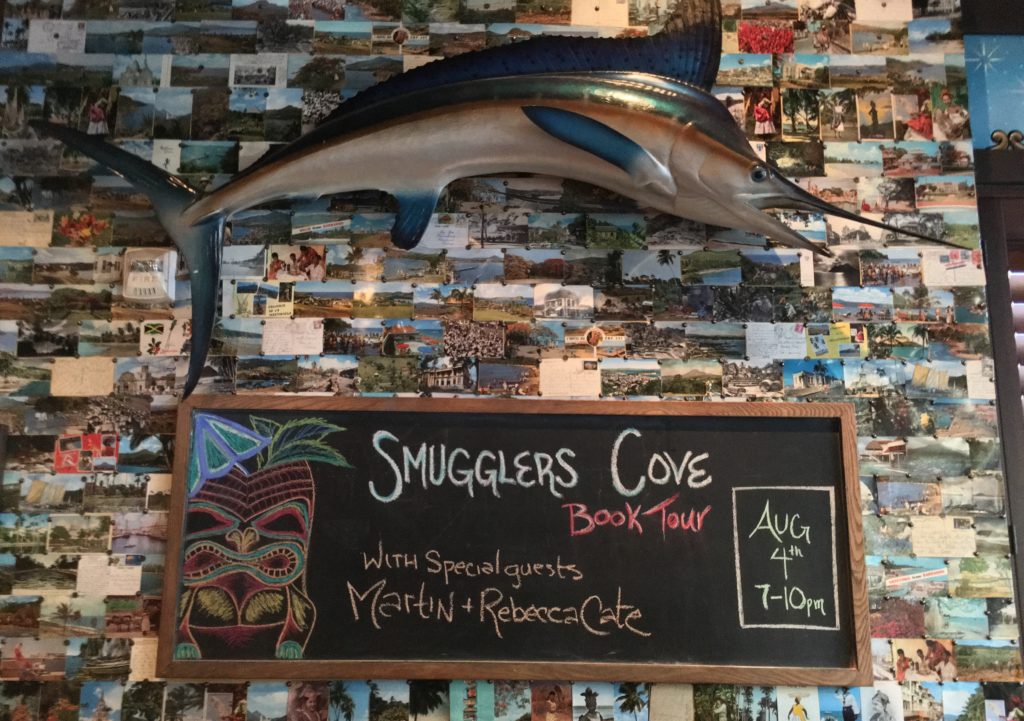 Smugglers Cove
Book Tour
With Special guests
Martin + Rebecca Cate
Aug
4th
7-10pm